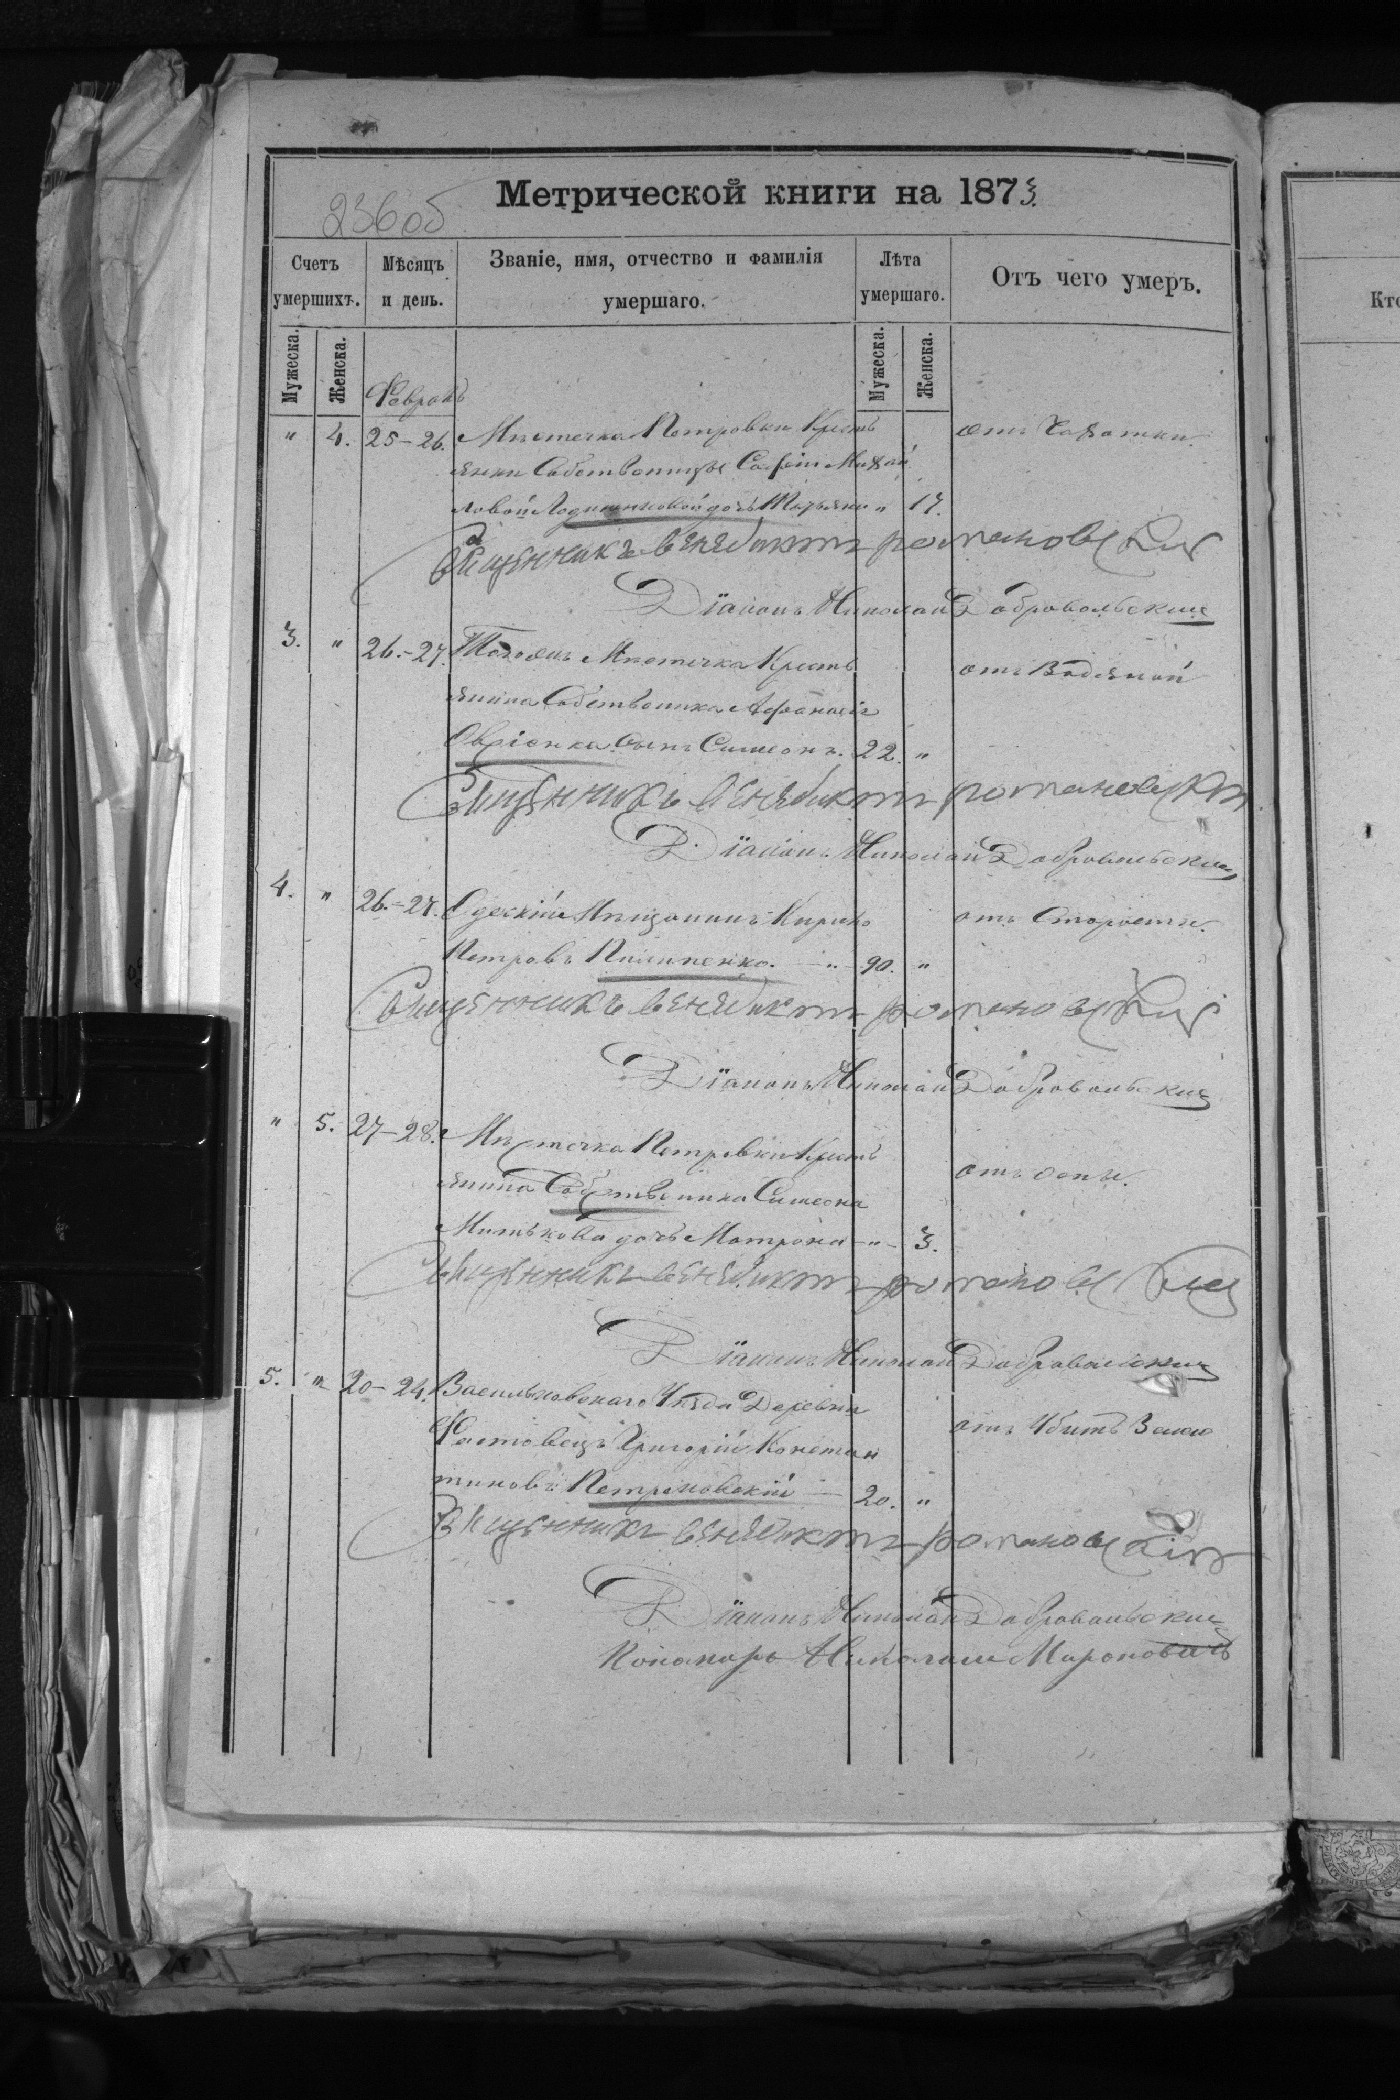 236об
Метрической книги на 1873.
Счетъ умершихъ.
Мѣсяцъ и день.
Званіе, имя, отчество и фамилія умершаго.
Лѣта умершаго.
Отъ чего умеръ.
Мужеска.
Женска.
Мужеска.
Женска.
Кто
Февраль
" 4. 25-26. Мѣстечка Петровки Кресть отъ Чахотки.
янки Собственницы Софіи Михай
ловой дочь Татьяна " 17.
Священникъ Венедиктъ Романовскій
Діаконъ Николай Добровольскій
3. " 26.-27. Тогожъ Мѣстечка Кресть отъ Водяной
янина Собственника Афанасія
Овсіенка Сынъ Симеонъ. 22. "
Священникъ Венедиктъ Романовскій
Діаконъ Николай Добровольскій
4. " 26.-27. Одескій Мѣщанинъ Кирило отъ Старости.
Петровъ Пилипенко. - " - 90. "
Священникъ Венедиктъ Романовскій
Діаконъ Николай Добровольскій
" 5. 27-28. Мѣстечка Петровки Кресть отъ оспы.
янина Собственника Симеона
Митькова дочь Матрона - " - 3.
Священникъ Венедиктъ Романовскій
Діаконъ Николай Добровольскій
5. " 20-24. Васильковскаго Уѣзда Деревни отъ Убитъ Землею
Фастовецъ Григорій Констан
тиновъ Петрановскій - 20. "
Священникъ Венедиктъ Романовскій
Діаконъ Николай Добровольскій
Пономарь Николай Мироновичъ